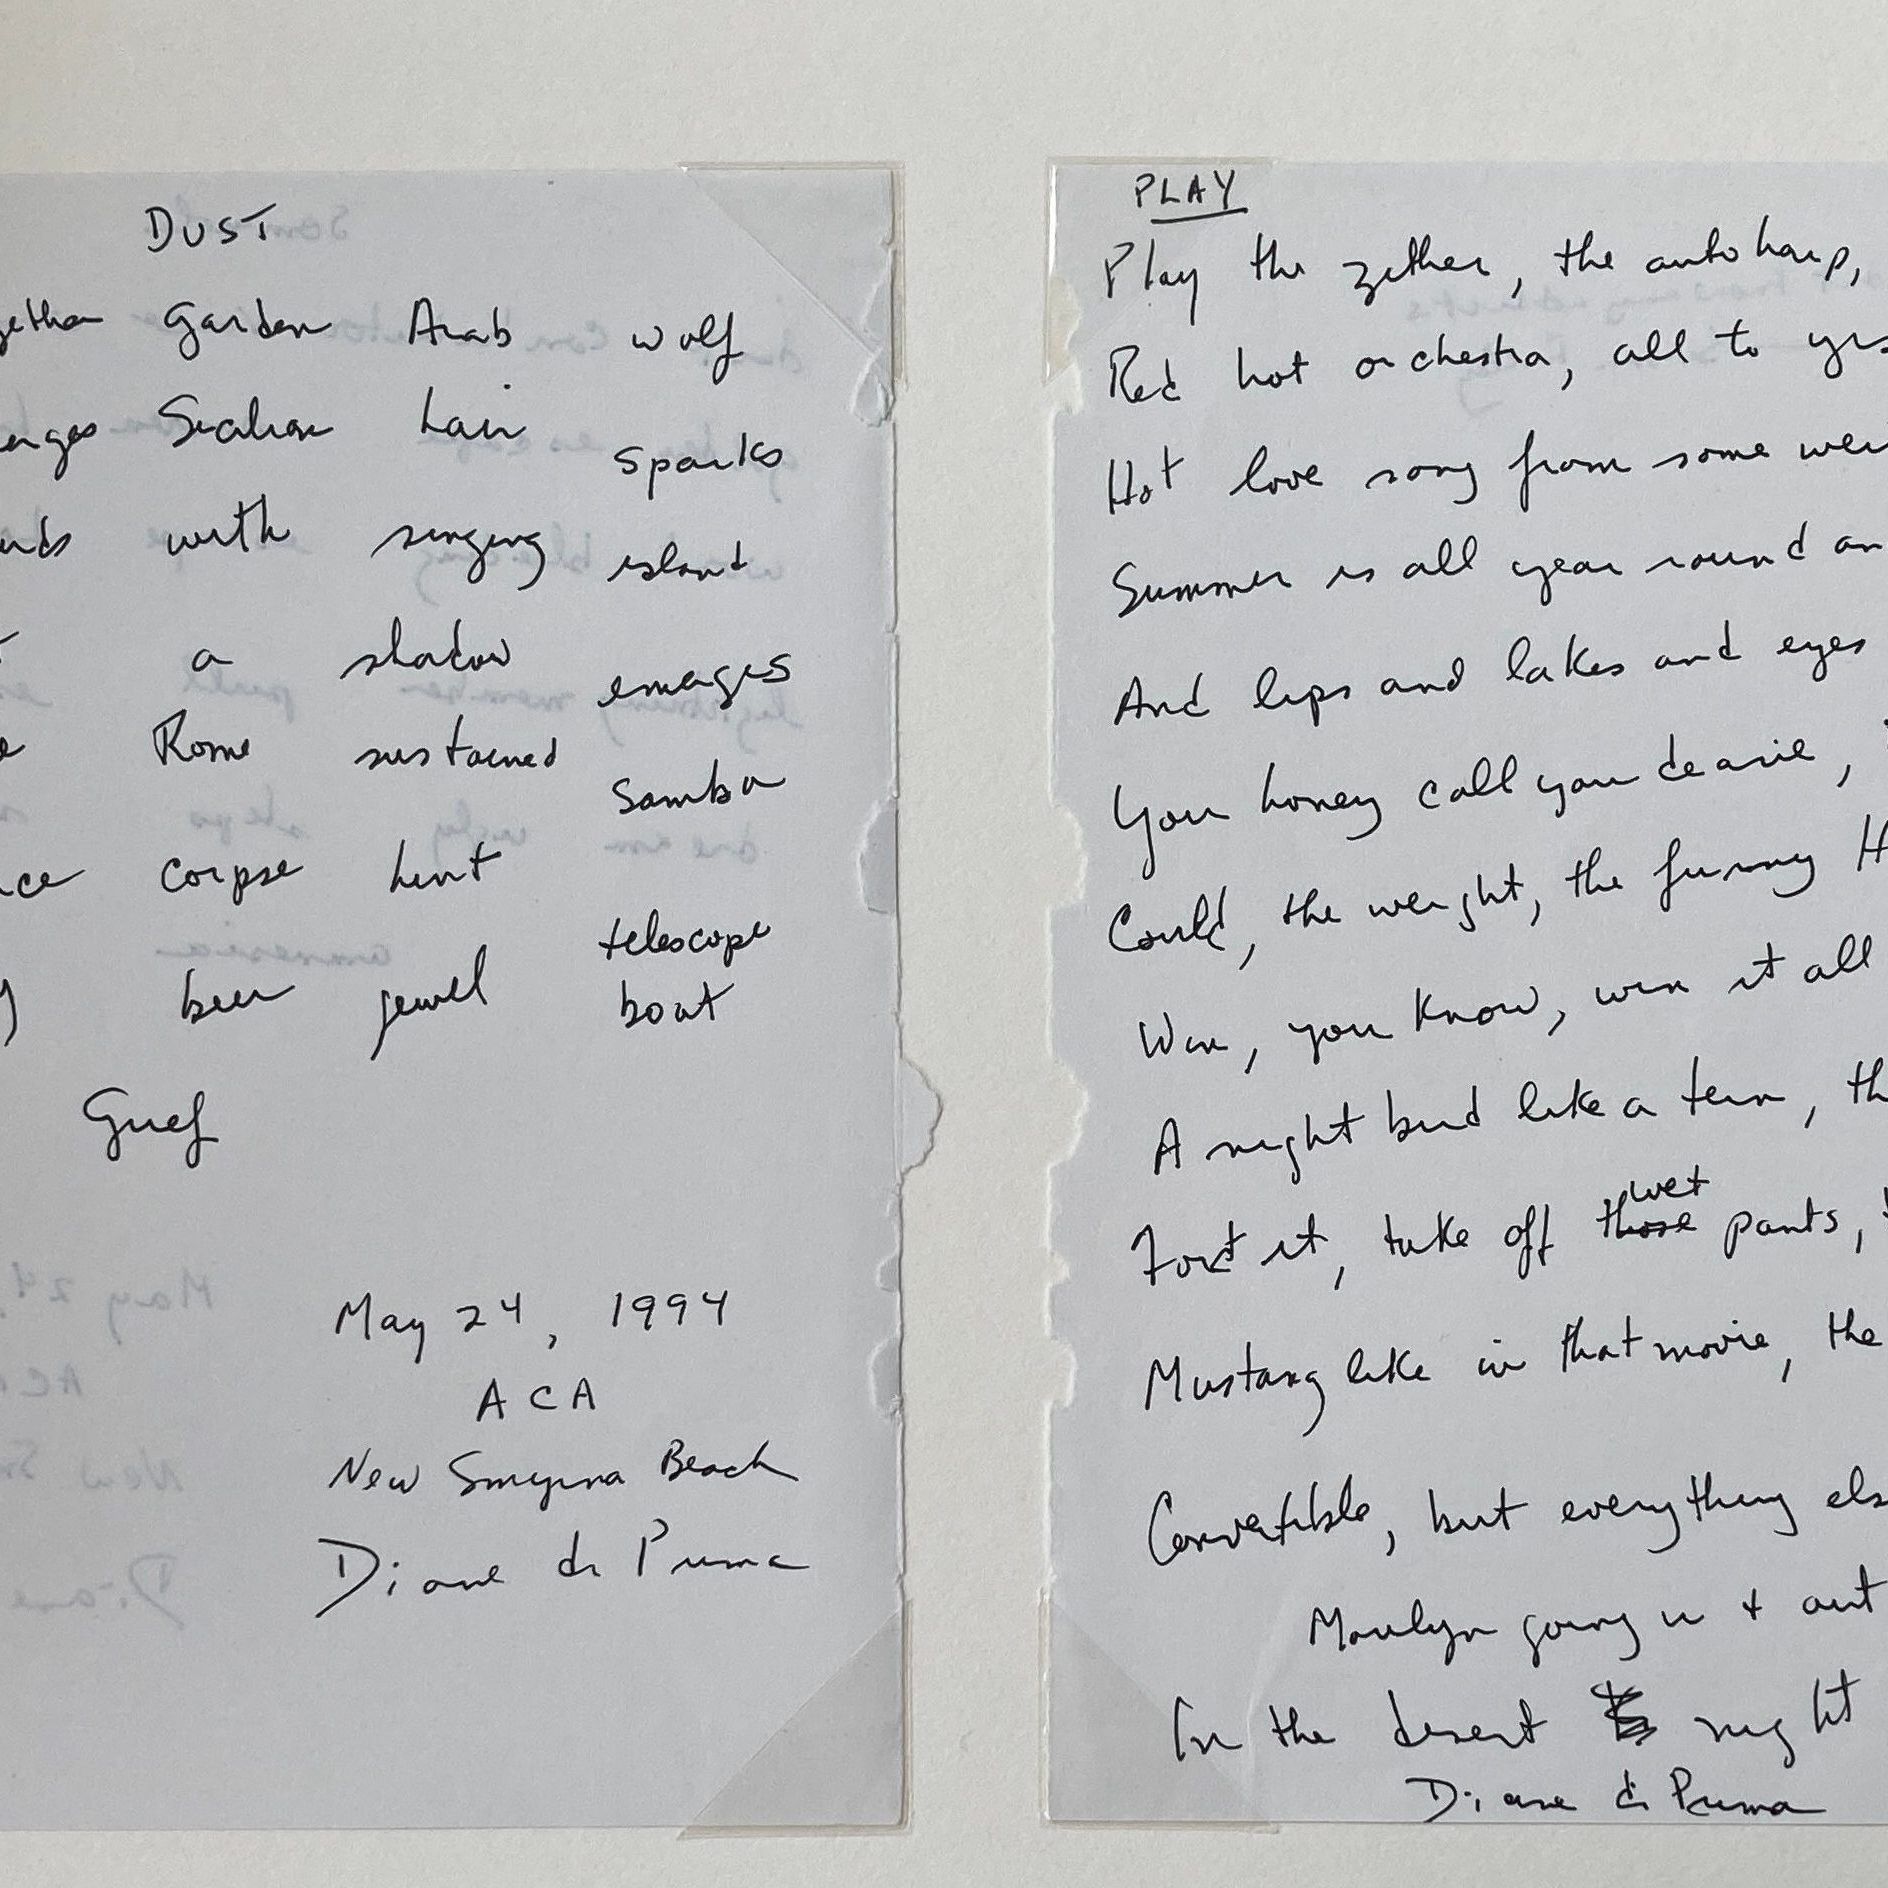 DUST
garden Arab wolf
hair sparks
with singing island
a shadow emages
Rome sustained samba
corpse hint telescope
beer jewel boat
Grief
May 24, 1994
ACA
New Smyrna Beach
Diane di Prima
PLAY
Play the zither, the autoharp,
Red hot orchestra, all to
Hot love song from some
Summer is all year round an
And lips and lakes and eyes
Your honey call you dearie,
Could, the weight, the funny
Win, you know, win it all
A night bird like a tern, th
it, take off those wet pants,
Mustang like in that movie, the
Convertible, but everything els
Marilyn going in + out
In the desert night
Diane di Prima